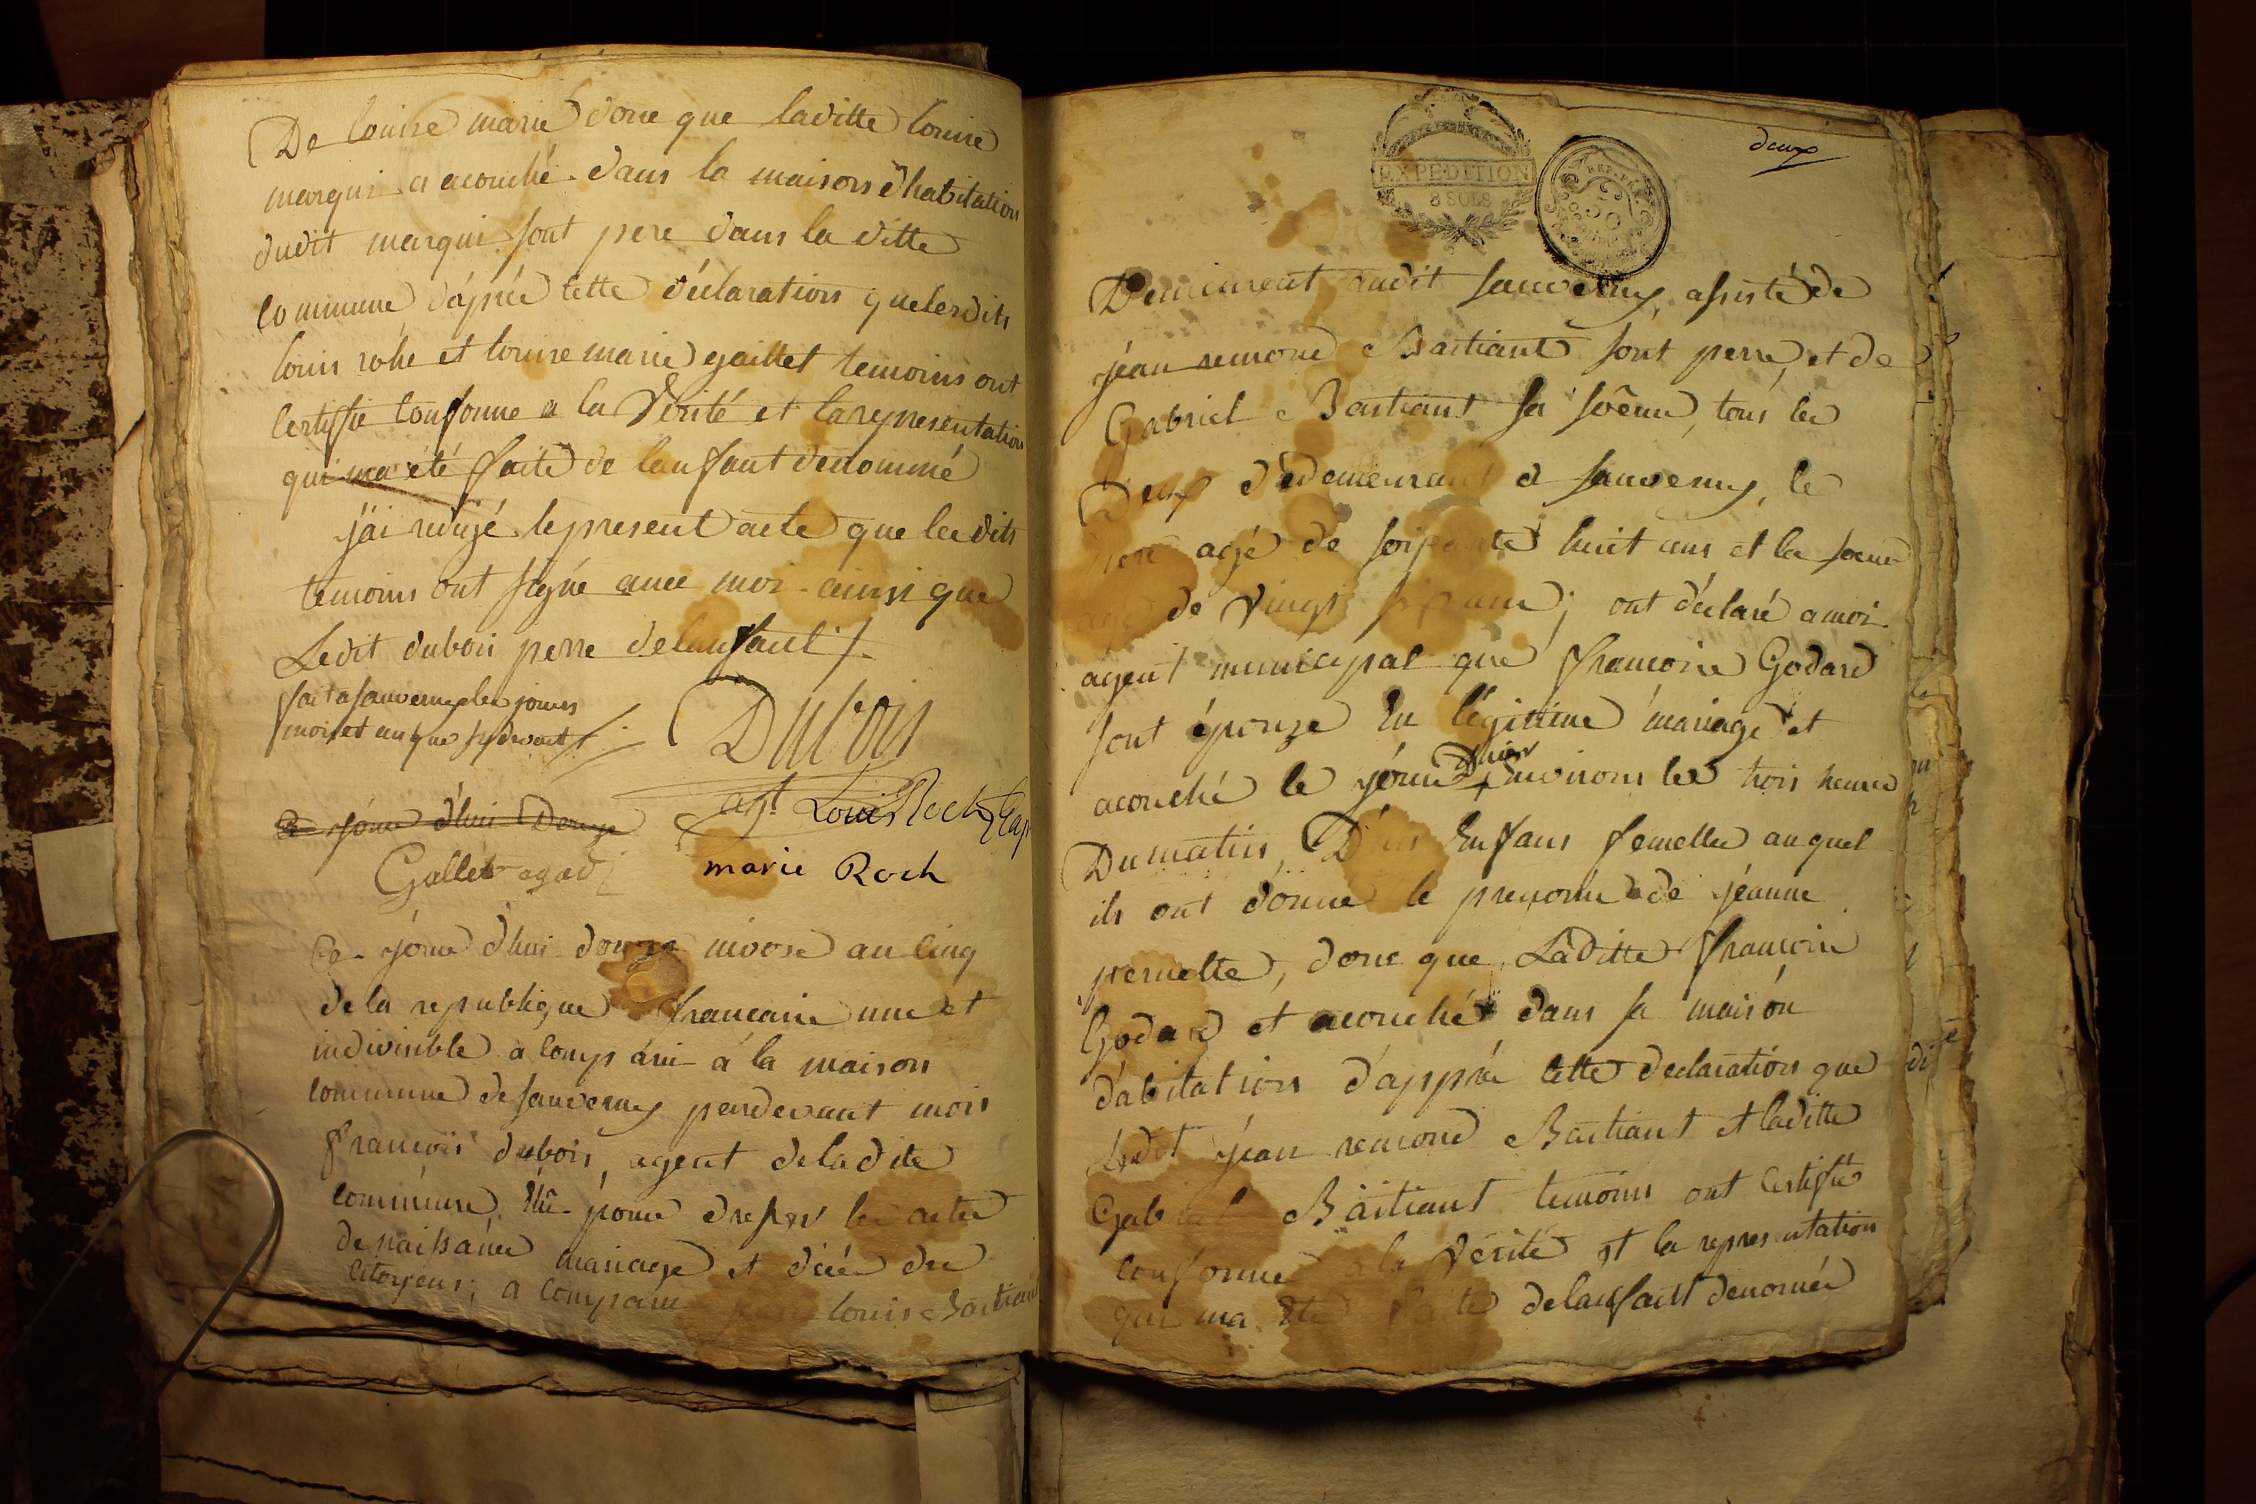 De louise marie donc que laditte louise
marqui a acouché dans la maisons d'habitation
dudit marqui sont pere dans la ditte
commune d'áprée cette déclaration quelesdits
louis rohe et louise marie gaillet temoins ont
certiffie confonne a la Vérité et la representation
qui ma été faite de lanfant denommé
j'ai rédigé le present acte que les dits
temoins ont signé avec moi ainsi que
Ledit dubois perre delanfant
fait a sauverny les jours
mois et an que sydevant
Dubois
agt Louis Roch
ce jour d'hui Douze
Gallet
marie Roch
Ce jour d'hui douze nivose an cinq
de la republique francaise une et
indivisible a comparu á la maison
commune de sauverny pardevant mois
francois dubois, agent deladite
commune Elu pour dresser les actes
de naissance mariage et décée des
citoyens; a comparu jean louis Bastiant
deux
EXPEDITION
8 SOLS
REP. FRA.
50
Demeurant audit sauverny, assisté de
jéan remond Bastiant sont perre, et de
Gabriel Bastiant sa soeur, tous les
Deux dédemeurant a sauverny, le
pere agé de soixante huit ans et la soeur
agé de vingt six ans; ont déclaré a moi
agent municipal que francoise Godard
sont épouze En légitime mariage et
acouché le jour d'hier environs les trois heure
Dumatin, D'un Enfans femelle auquel
ils ont donné le prenom de jéanne
pernette, donc que Laditte francoise
Godard et acouché dans sa maison
d'abitation d'apprée cette declaration que
Ledit jéan remond Bastiant et laditte
Gabriel Bastiant temoins ont certiffie
confonne a la Vérité et la representation
qui ma Eté faite delanfant denomée